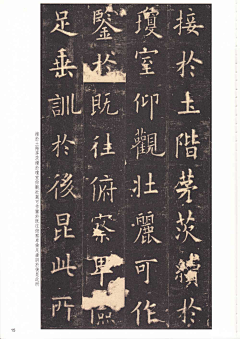 接於土階茅茨續於
瓊室仰觀壯麗可作
鑒於既往俯察卑儉
足垂訓於後昆此所